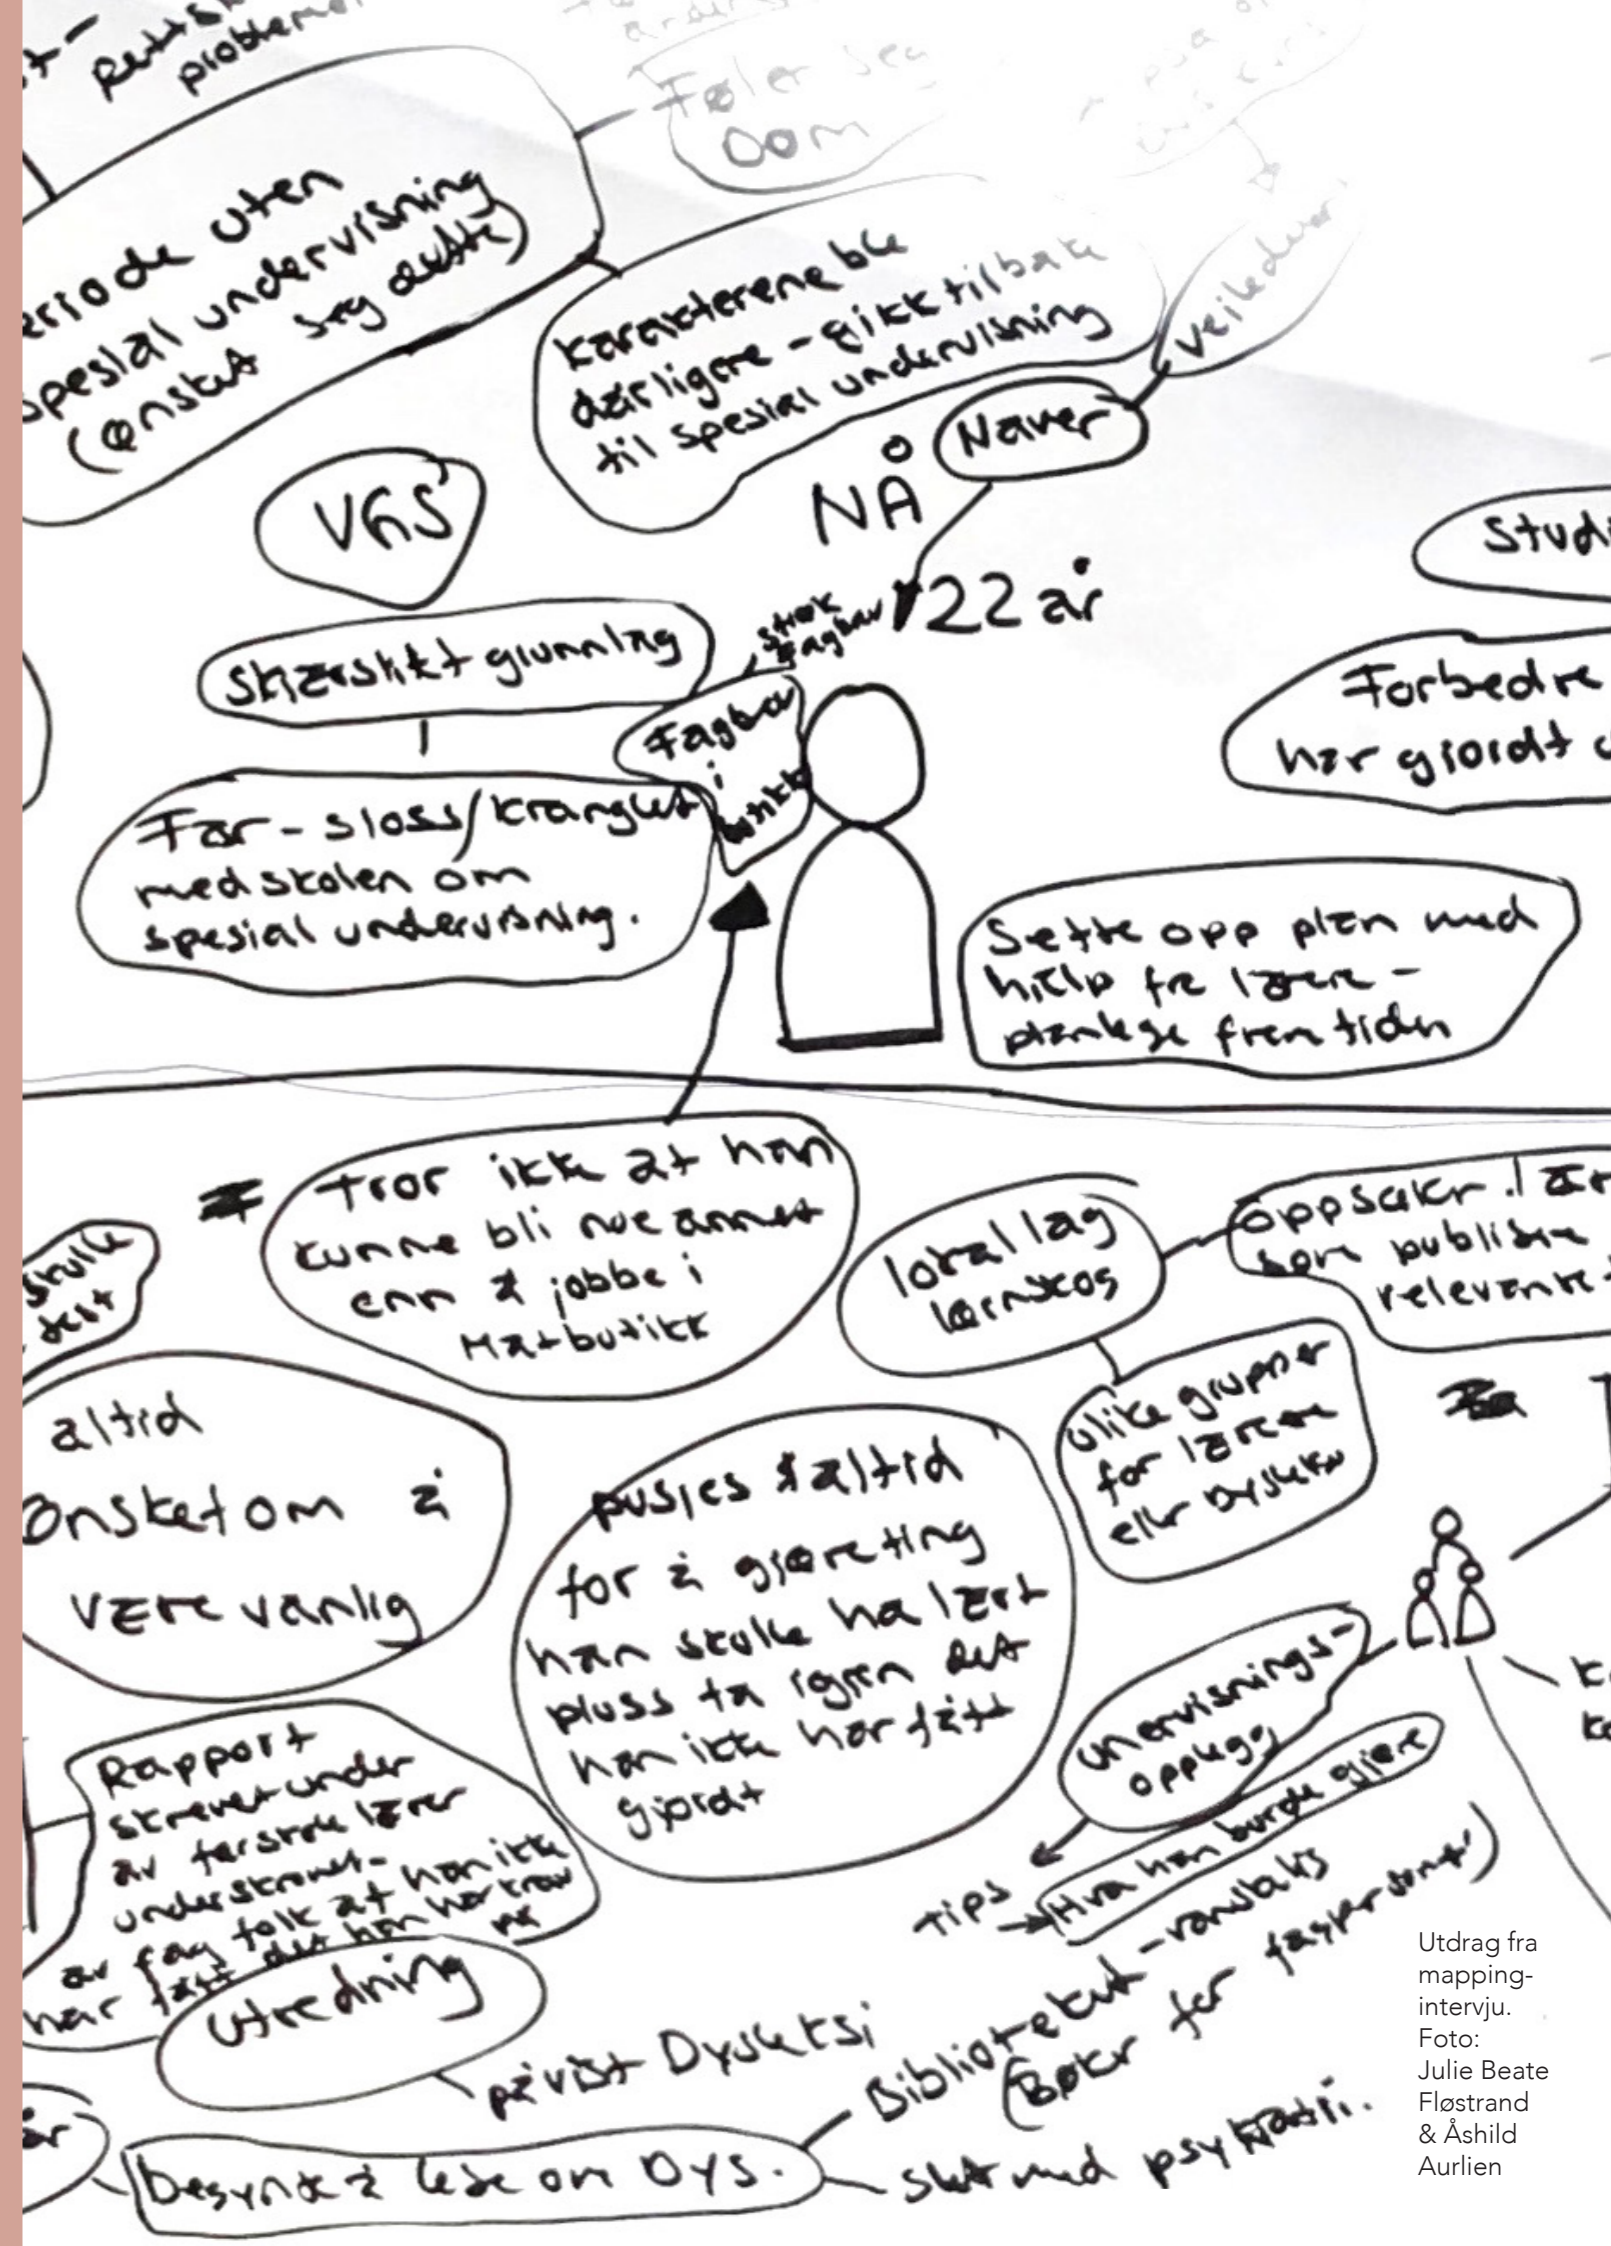 problemer
Føler seg
DOM
eriode uten
spesial undervisning
(ønsket seg dette)
karakterene ble
dårligere - gikk tilbake
til spesial undervisning
veileder
Naver
NÅ
22 år
VGS
Studi
stræk
fagbrev
skjærslikt grunnlag
Fagbrev
i
butikk
Forbedre
har gjordt
Far - sloss/kranglet
med skolen om
spesial undervisning.
Sette opp plan med
hjelp fra lærere -
planlege fremtiden
Tror ikke at han
kunne bli noe annet
enn å jobbe i
Matbutikk
lokal lag
lørnskog
oppsøker
som publisere
relevante
skulle
test
altid
Ønsket om å
være vanlig
pusjes altid
for å gjøre ting
han skulle ha lært
pluss ta igjen det
han ikke har fått
gjordt
Ulike grupper
for lærere
eller Dyslektik
unervisnings-
opplegg
tips
Hva han burde gjøre
Rapport
skrevet under
av første lærer
underskrevet-
av fag folk at han ikke
har fått det han har krav
på
Utredning
påvist Dysleksi
Biblioteket - vanskelig
(Bøkr for fagpersoner)
begynte å lese om Dys.
slutt med psykiatri.
Utdrag fra
mapping-
intervju.
Foto:
Julie Beate
Fløstrand
& Åshild
Aurlien